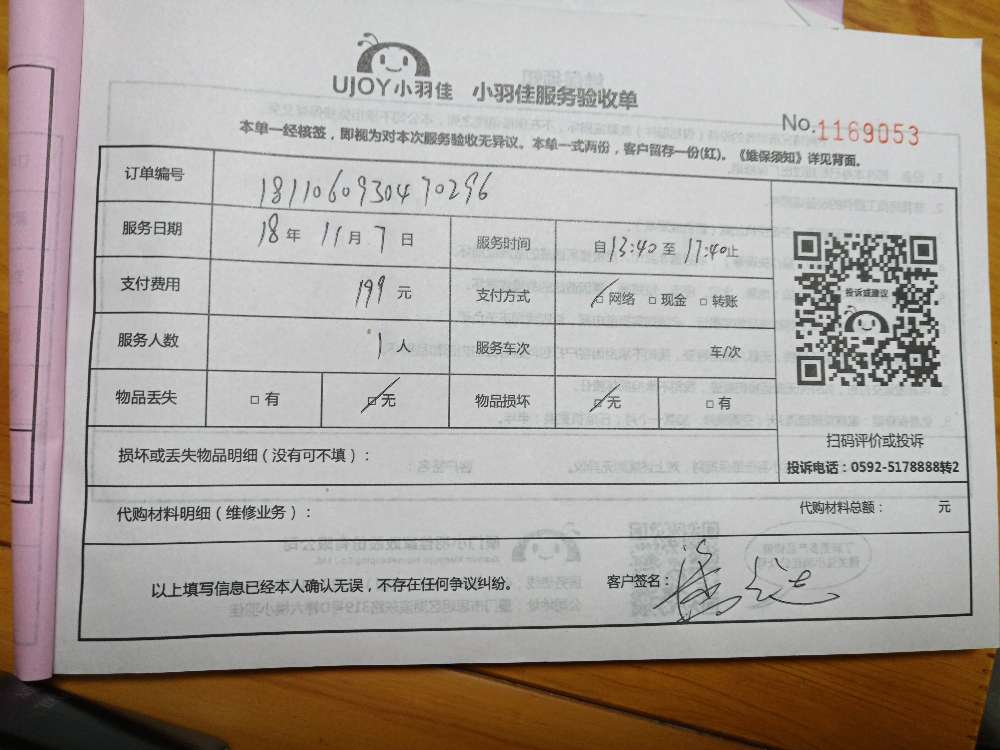 UJOY小羽佳 小羽佳服务验收单
No.1169053
本单一经核签，即视为对本次服务验收无异议。本单一式两份，客户留存一份(红)。《维保须知》详见背面。
订单编号 18110609304 70296
服务日期 18年 11月 7日 服务时间 自13:40至17:40止
支付费用 199元 支付方式 □网络 □现金 □转账
投诉或建议
服务人数 1人 服务车次 车/次
物品丢失 □有 □无 物品损坏 □无 □有
扫码评价或投诉
损坏或丢失物品明细（没有可不填）：
投诉电话：0592-5178888转2
代购材料明细（维修业务）： 代购材料总额： 元
以上填写信息已经本人确认无误，不存在任何争议纠纷。 客户签名：